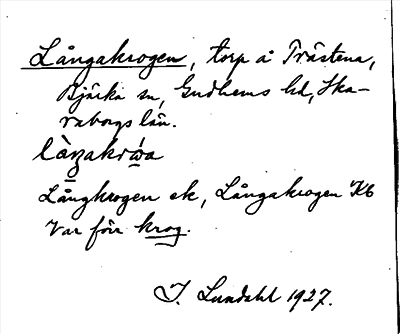 Långakrogen, torp å Trästena,
Bjärka sn, Gudhems hd, Ska-
raborgs län.
Långkrogen ek, Långakrogen Kb
Var förr krog.
I. Lundahl 1927.